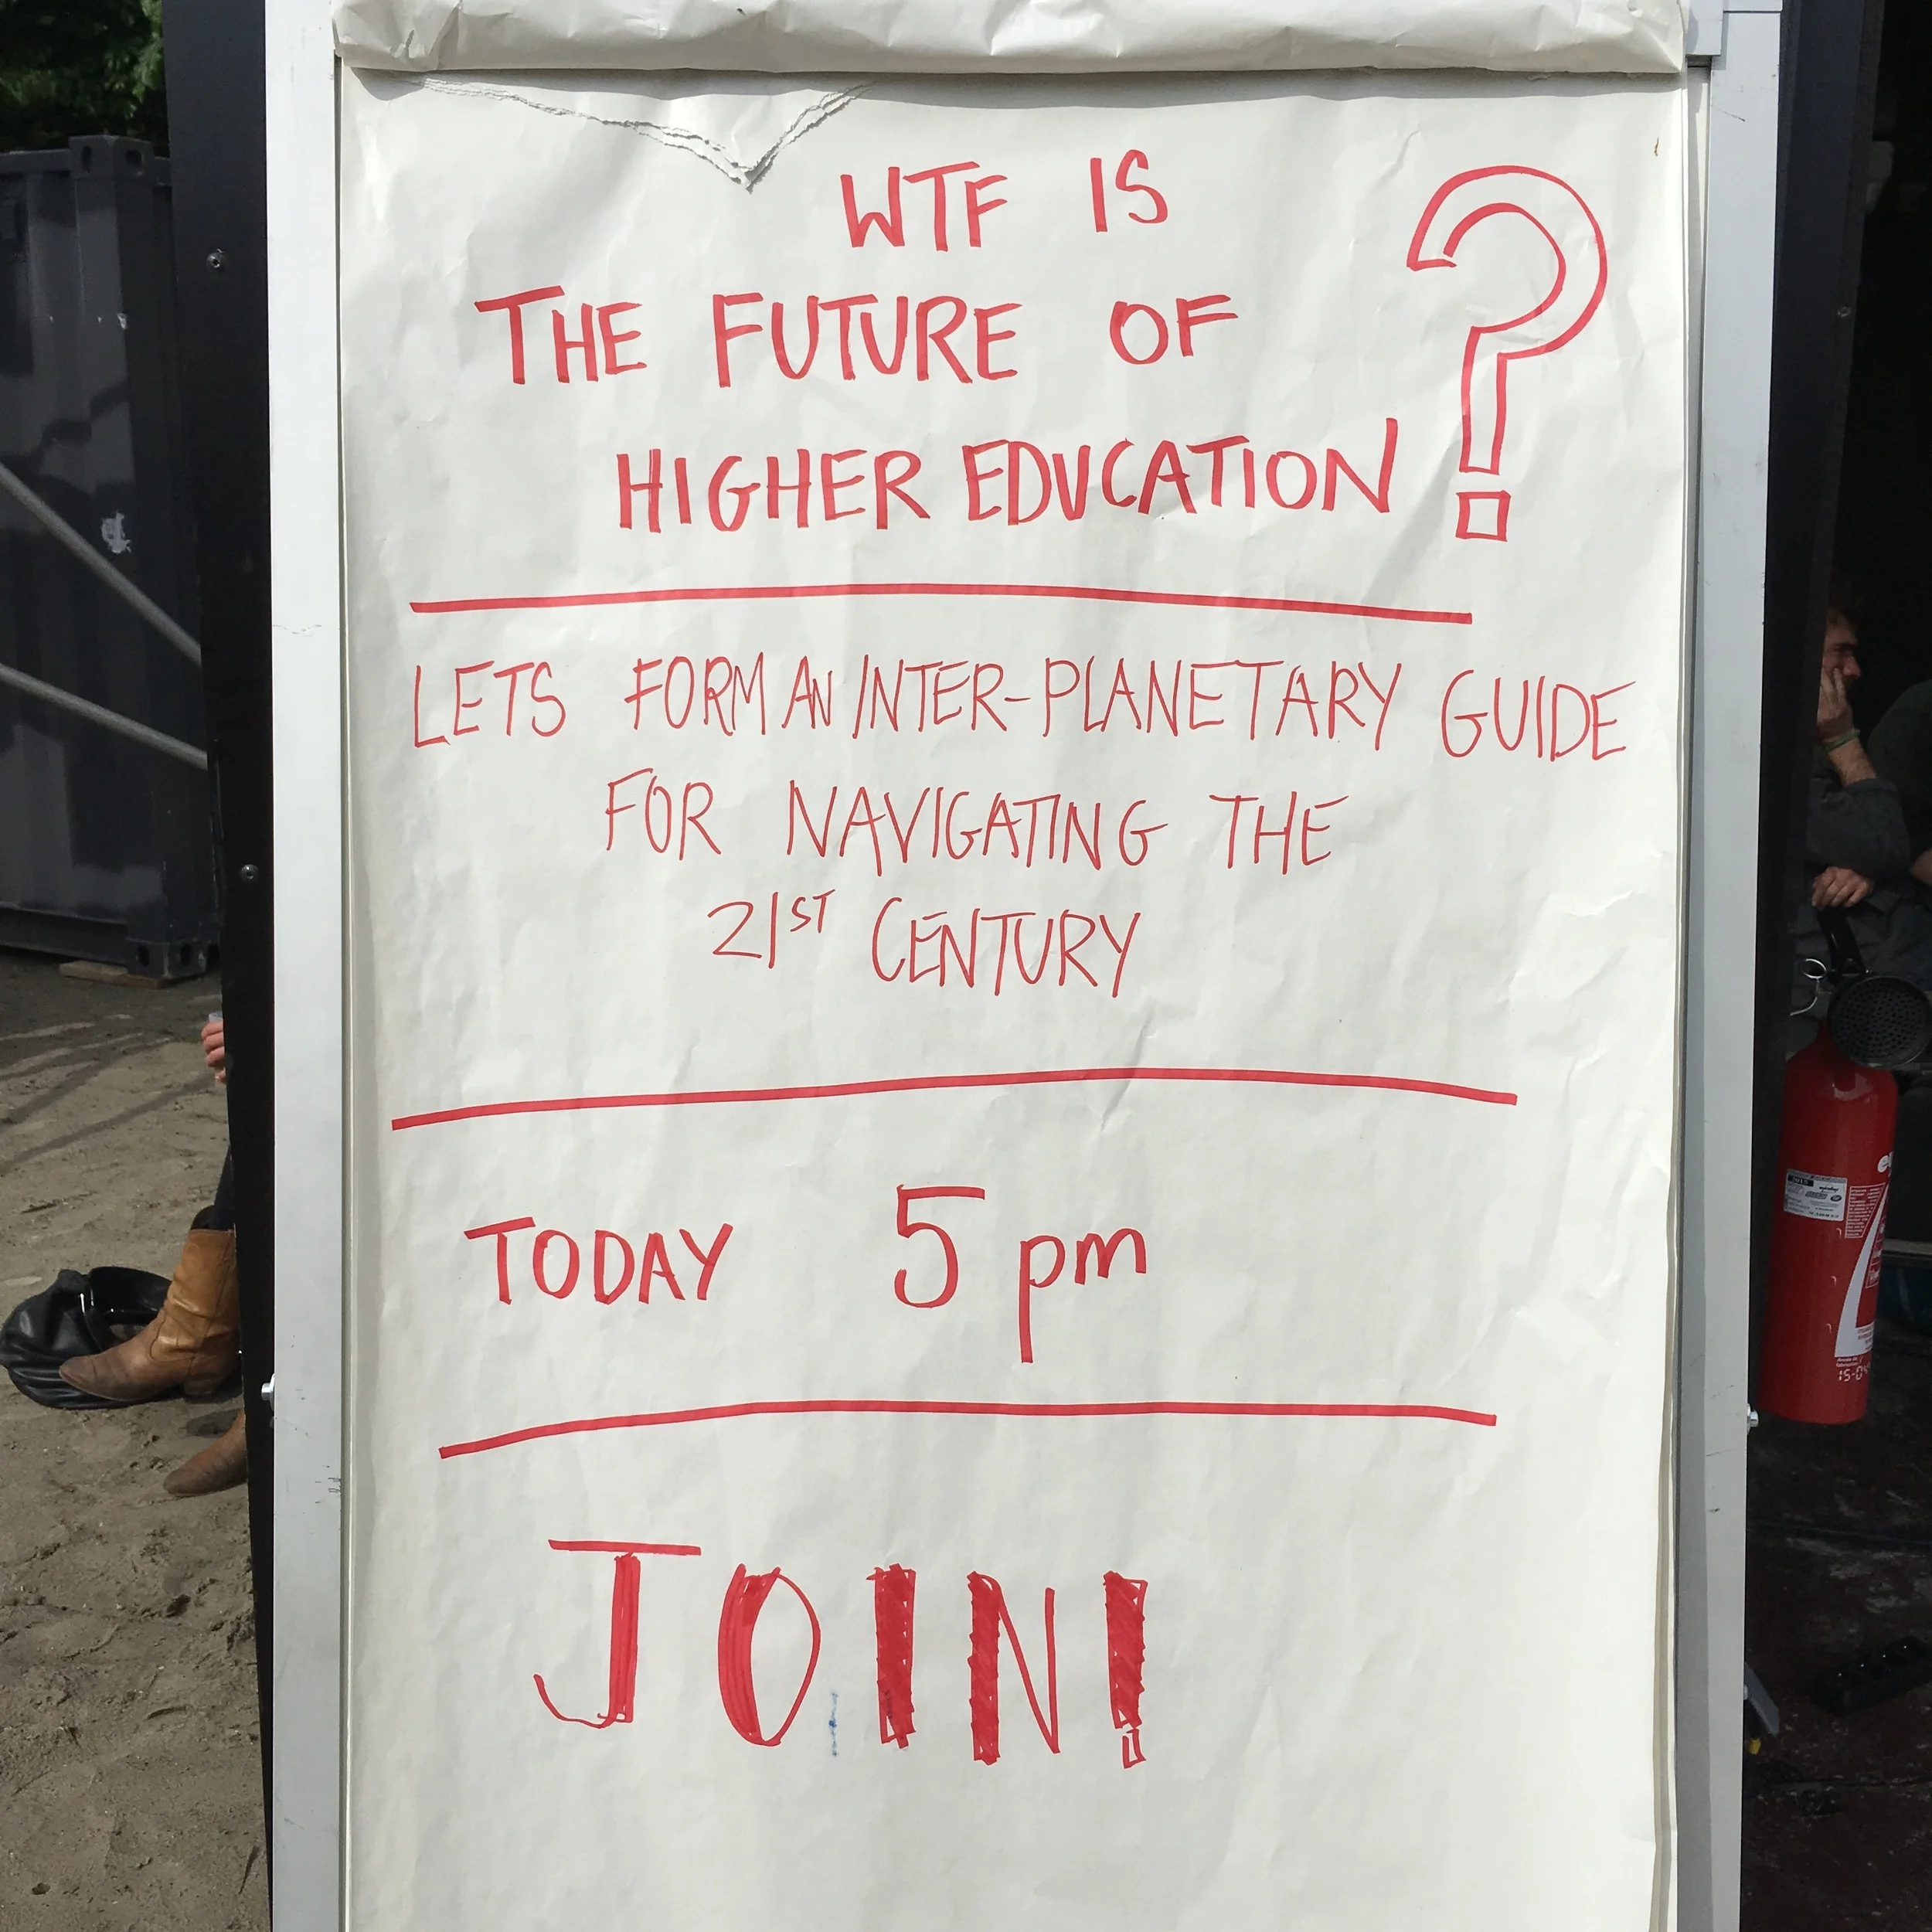 WTF IS
THE FUTURE OF
HIGHER EDUCATION ?
LETS FORM AN INTER-PLANETARY GUIDE
FOR NAVIGATING THE
21ST CENTURY
TODAY 5 pm
JOIN!
2015